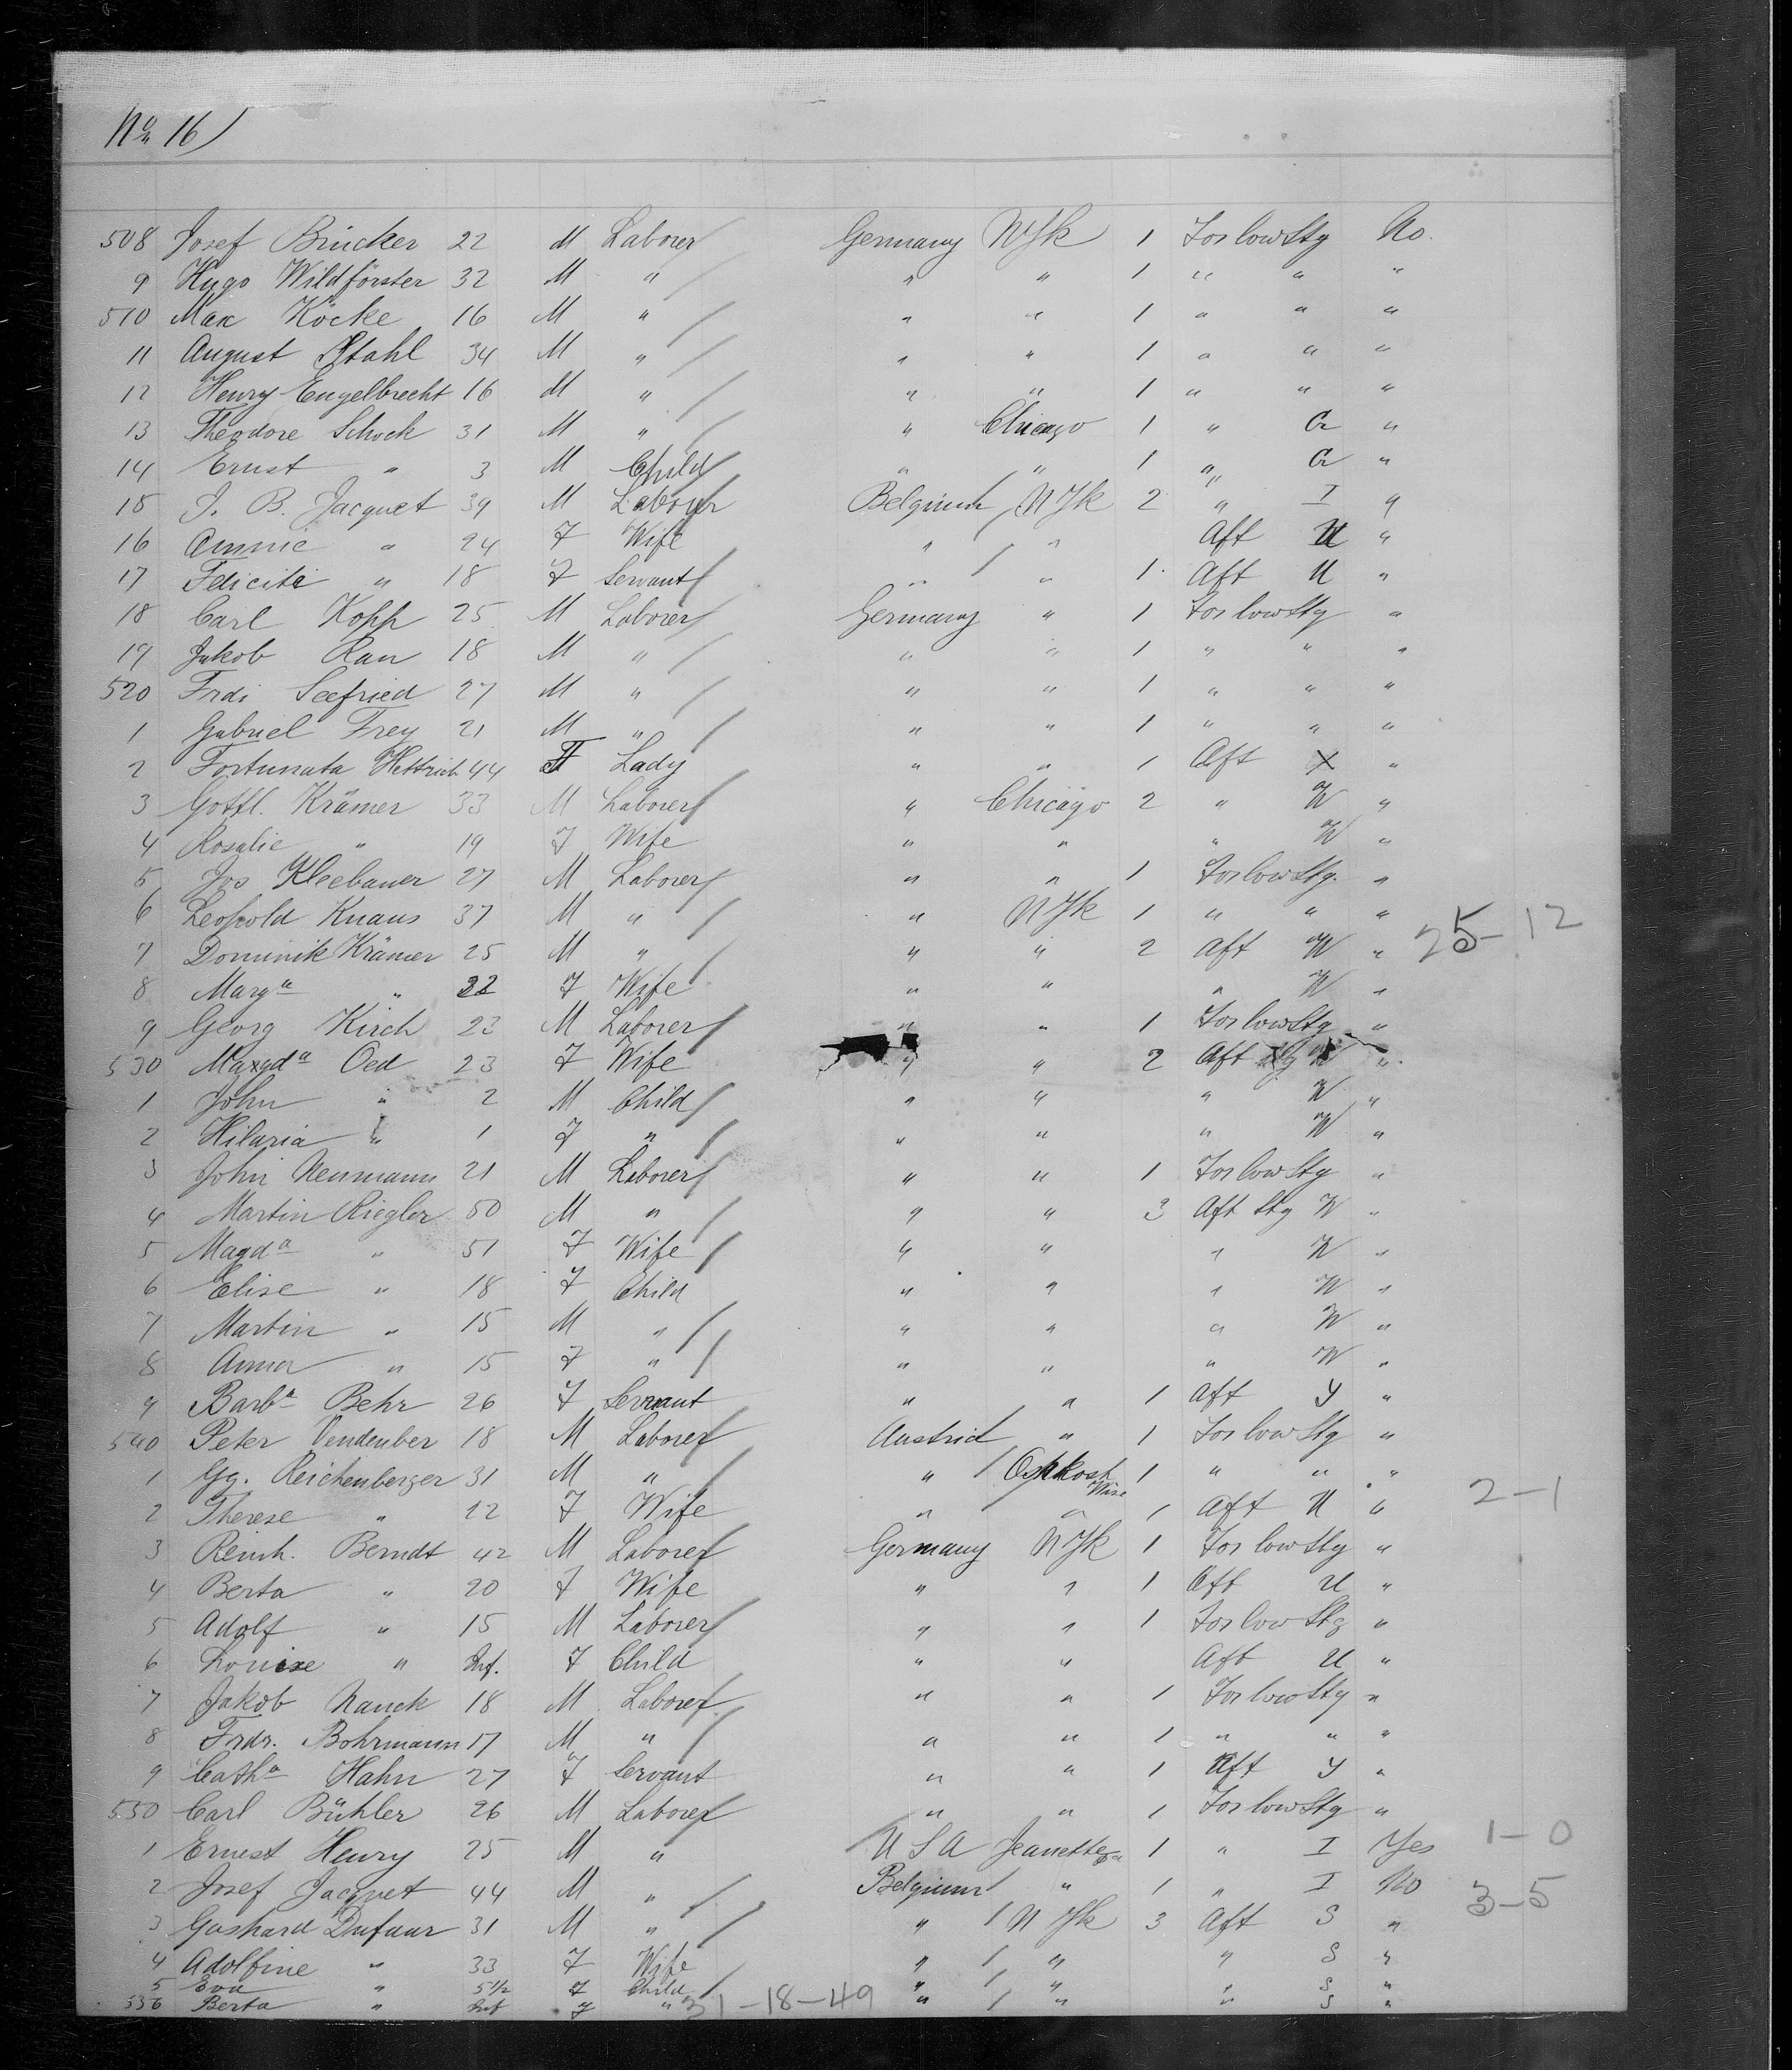 No 16)
508 Josef Brücker 22 M Laborer Germany NYk 1 For low Stg No.
9 Hugo Wildförster 32 M " " " 1 " " "
510 Max Köcke 16 M " " " 1 " " "
11 August Stahl 34 M " " " 1 " " "
12 Henry Engelbrecht 16 M " " " 1 " " "
13 Theodore Schock 31 M " " Chicago 1 " G "
14 Ernst " 3 M Child " " 1 " G "
15 J. B. Jacquet 39 M Laborer Belgium NYk 2 " I "
16 Annie " 24 F Wife " " Aft U "
17 Felicite " 18 F Servant " " 1 Aft U "
18 Carl Kopp 25 M Laborer Germany " 1 For low Stg "
19 Jakob Rau 18 M " " " 1 " " "
520 Frdi Seefried 27 M " " " 1 " " "
1 Gabriel Frey 21 M " " " 1 " " "
2 Fortunata Hettrich 44 F Lady " " 1 Aft X "
3 Gottl. Krämer 33 M Laborer " Chicago 2 " W "
4 Rosalie " 19 F Wife " " " W "
5 Jos Kleebauer 27 M Laborer " " 1 For low Stg. "
6 Leopold Knaus 37 M " " NYk 1 " " " 25-12
7 Dominik Krämer 25 M " " " 2 Aft W "
8 Marga " 22 F Wife " " " W "
9 Georg Kirch 23 M Laborer " " 1 For low Stg "
530 Magda Oed 23 F Wife " " 2 Aft Stg W "
1 John " 2 M Child " " " W "
2 Hilaria " 1 F " " " " W "
3 John Neumann 21 M Laborer " " 1 For low Stg "
4 Martin Riegler 50 M " " " 3 Aft Stg W "
5 Magda " 51 F Wife " " " W "
6 Elise " 18 F Child " " " W "
7 Martin " 15 M " " " " W "
8 Anna " 15 F " " " " W "
9 Barba Behr 26 F Servant " " 1 Aft Y "
540 Peter Vendenber 18 M Laborer Austria " 1 For low Stg "
1 Gg. Reichenberger 31 M " " Oshkosh Wisc 1 " " "
2 Therese " 22 F Wife " " 1 Aft U " 2-1
3 Reinh. Berndt 42 M Laborer Germany NYk 1 For low Stg "
4 Berta " 20 F Wife " " 1 Aft U "
5 Adolf " 15 M Laborer " " 1 For low Stg "
6 Louise " Inf. F Child " " Aft U "
7 Jakob Nauck 18 M Laborer " " 1 For low Stg "
8 Frdr. Bohrmann 17 M " " " 1 " " "
9 Catha Hahn 27 F Servant " " 1 Aft Y "
550 Carl Bühler 26 M Laborer " " 1 For low Stg "
1 Ernest Henry 25 M " USA Jeanette Pa 1 " I Yes 1-0
2 Josef Jacquet 44 M " Belgium " 1 " I No
3 Gashard Dufaur 31 M " " NYk 3 Aft S " 3-5
4 Adolfine " 33 F Wife " " " S "
5 Eva " 5 1/2 F Child " " " S "
556 Berta " Inf F " " " " S "
31-18-49